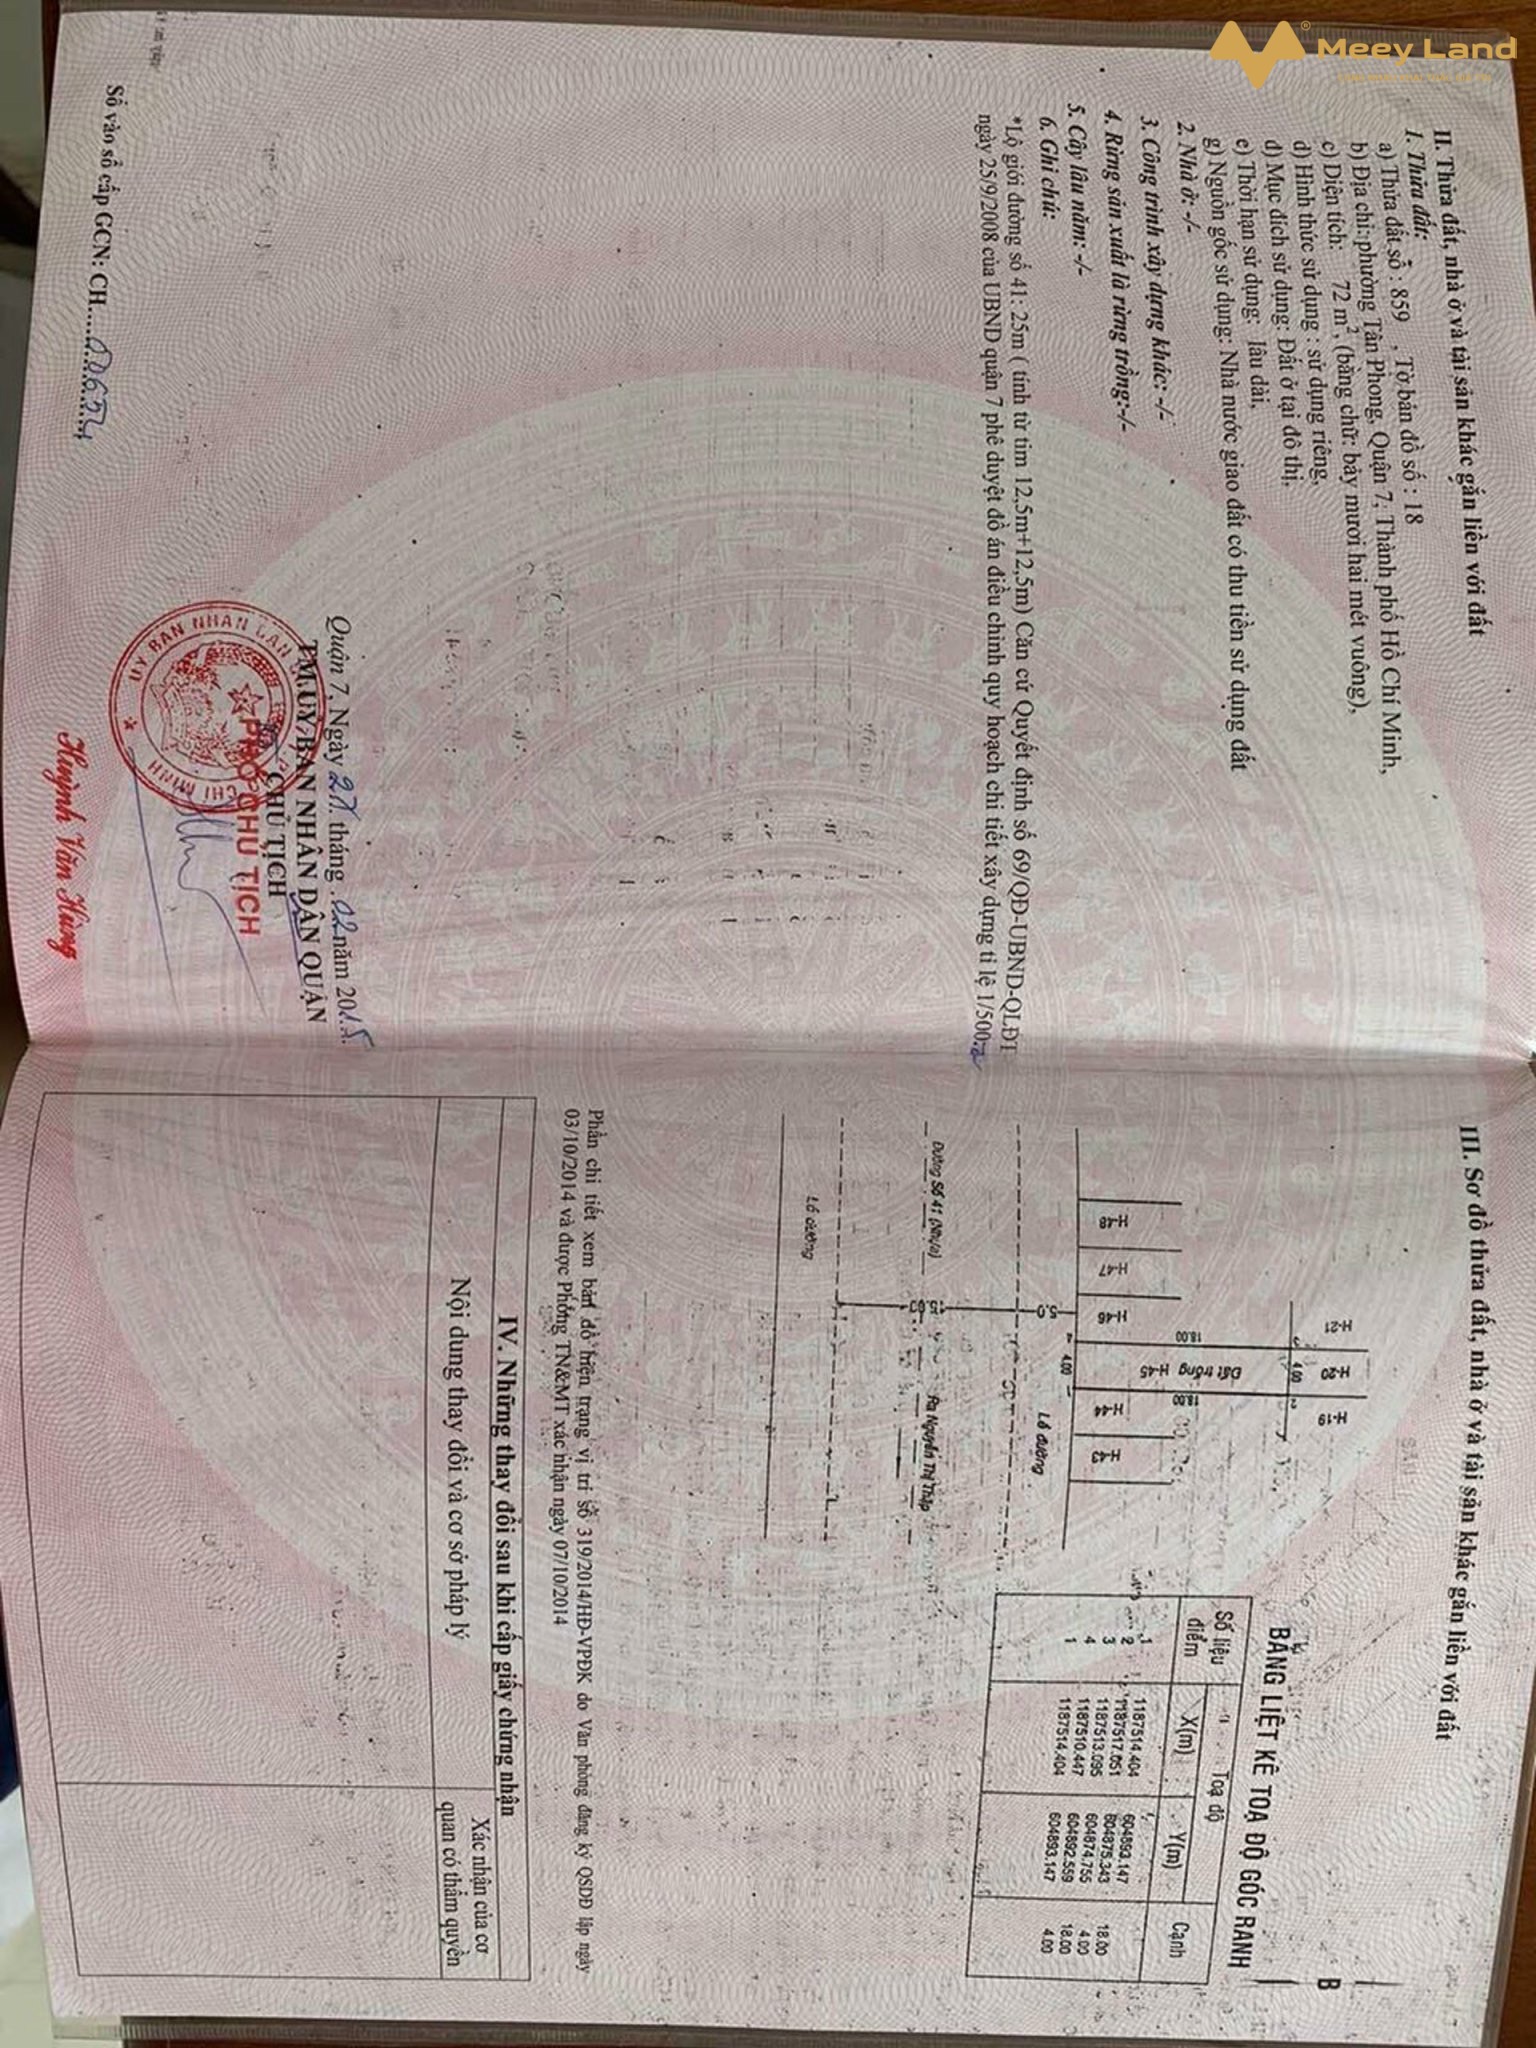 Meey Land
II. Thửa đất, nhà ở và tài sản khác gắn liền với đất
1. Thửa đất:
a) Thửa đất số : 859 , Tờ bản đồ số : 18
b) Địa chỉ: phường Tân Phong, Quận 7, Thành phố Hồ Chí Minh,
c) Diện tích: 72 m², (bằng chữ: bảy mươi hai mét vuông),
d) Hình thức sử dụng : sử dụng riêng,
đ) Mục đích sử dụng: Đất ở tại đô thị,
e) Thời hạn sử dụng: lâu dài,
g) Nguồn gốc sử dụng: Nhà nước giao đất có thu tiền sử dụng đất
2. Nhà ở: -/-
3. Công trình xây dựng khác: -/-
4. Rừng sản xuất là rừng trồng:-/-
5. Cây lâu năm: -/-
6. Ghi chú:
*Lộ giới đường số 41: 25m ( tính từ tim 12,5m+12,5m) Căn cứ Quyết định số 69/QĐ-UBND-QLĐT
ngày 25/9/2008 của UBND quận 7 phê duyệt đồ án điều chỉnh quy hoạch chi tiết xây dựng tỉ lệ 1/500.
Quận 7, Ngày 27 tháng .02 năm 2015.
TM.ỦY BAN NHÂN DÂN QUẬN
CHỦ TỊCH
PHÓ CHỦ TỊCH
Huỳnh Văn Hùng
Số vào sổ cấp GCN: CH.....00654
III. Sơ đồ thửa đất, nhà ở và tài sản khác gắn liền với đất
B
H-21
H-20
H-19
4.00
18.00
18.00
Đất trống H-45
4.00
H-48
H-47
H-46
H-44
H-43
Lề đường
5.0
Đường Số 41 (Nhựa)
15.0
Ra Nguyễn Thị Thập
Lề đường
BẢNG LIỆT KÊ TOẠ ĐỘ GÓC RANH
Số liệu điểm Toạ độ Cạnh
X(m) Y(m)
1 1187514.404 604893.147
18.00
2 1187517.051 604875.343
4.00
3 1187513.095 604874.755
18.00
4 1187510.447 604892.559
4.00
1 1187514.404 604893.147
Phần chi tiết xem bản đồ hiện trạng vị trí số 319/2014/HĐ-VPĐK do Văn phòng đăng ký QSDĐ lập ngày
03/10/2014 và được Phòng TN&MT xác nhận ngày 07/10/2014
IV. Những thay đổi sau khi cấp giấy chứng nhận
Nội dung thay đổi và cơ sở pháp lý
Xác nhận của cơ
quan có thẩm quyền